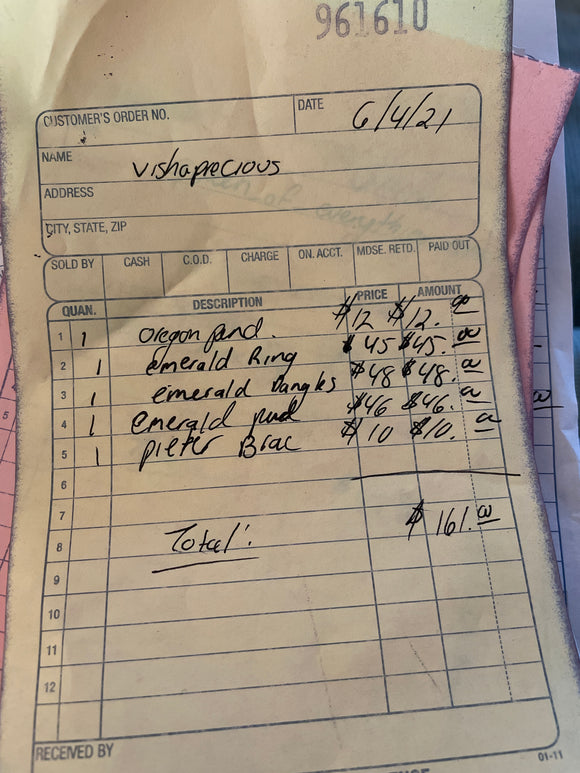 961610
CUSTOMER'S ORDER NO. DATE 6/4/21
NAME vishaprecious
ADDRESS
CITY, STATE, ZIP
SOLD BY CASH C.O.D. CHARGE ON. ACCT. MDSE. RETD. PAID OUT
QUAN. DESCRIPTION PRICE AMOUNT
1 1 oregon pend. $12 $12.00
2 1 emerald Ring $45 $45.00
3 1 emerald Dangles $48 $48.00
4 1 emerald pend $46 $46.00
5 1 pieter Brac $10 $10.00
6
7
8 Total: $161.00
9
10
11
12
RECEIVED BY
01-11